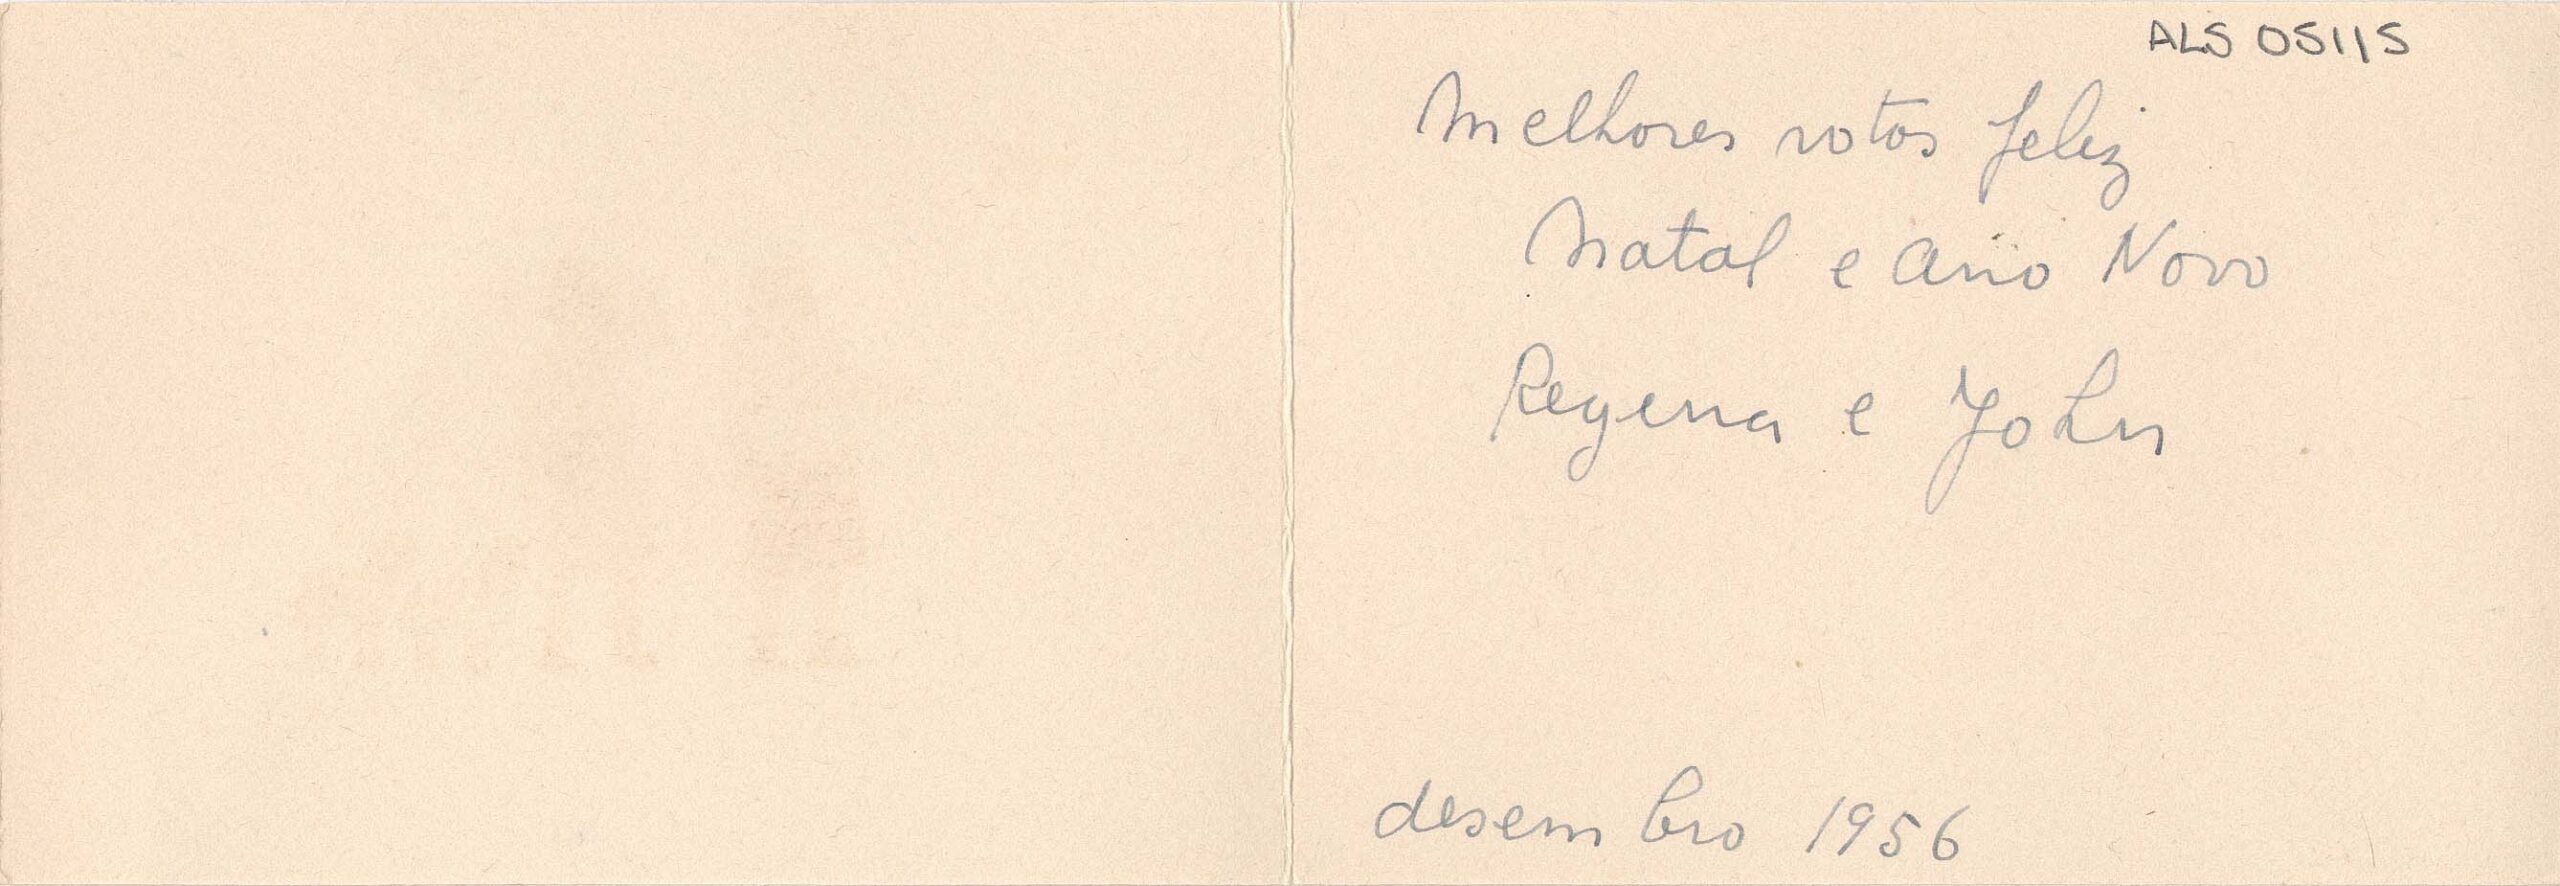 ALS 05115
Melhores votos feliz
Natal e Ano Novo
Regina e John
desembro 1956